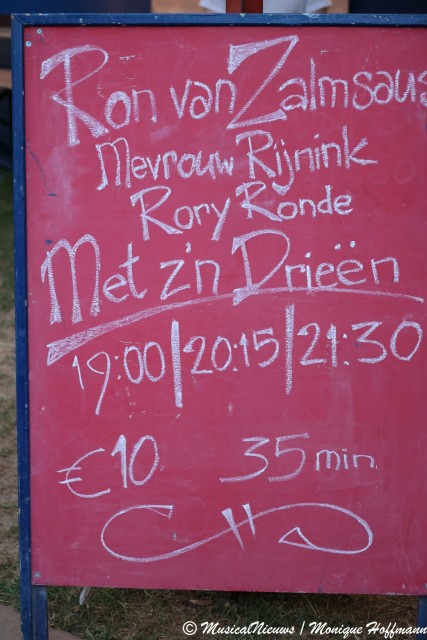 Ron van Zalmsaus
Mevrouw Rijnink
Rory Ronde
Met z'n Drieën
19:00 | 20:15 | 21:30
€10 35 min.
© MusicalNieuws | Monique Hoffmann